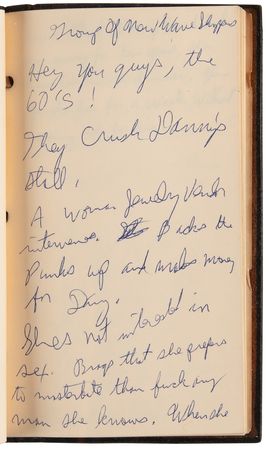 Group Of New Wave Shoppers
Hey You guys, the
60's!
They Crush Danny's
still.
A woman Jewelry Vendor
intervenes. Backs the
Punks up and makes money
for Dany.
She's not interested in
sex. Brags that she prefers
to masterbate than fuck any
man she knows. When she